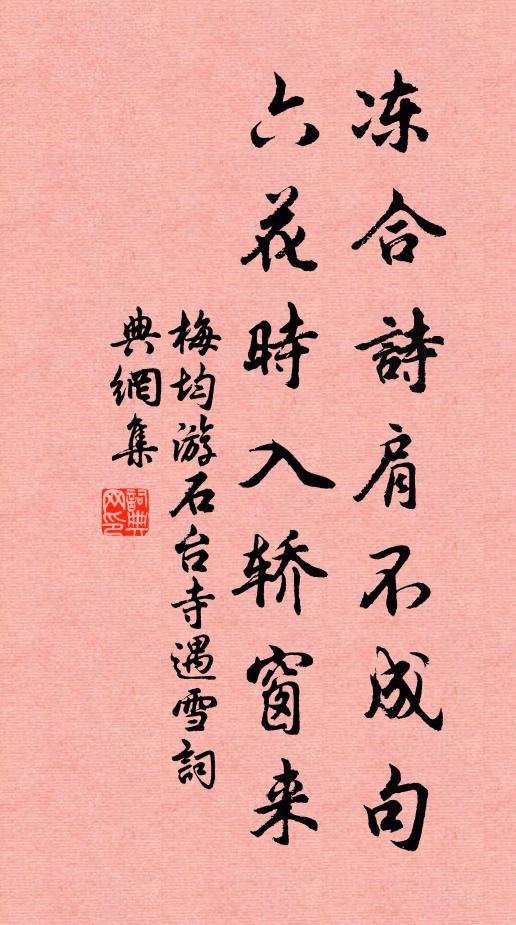 冻合詩肩不成句
六花時入轿窗来
梅均游石台寺遇雪詞
典網集
詞典网印